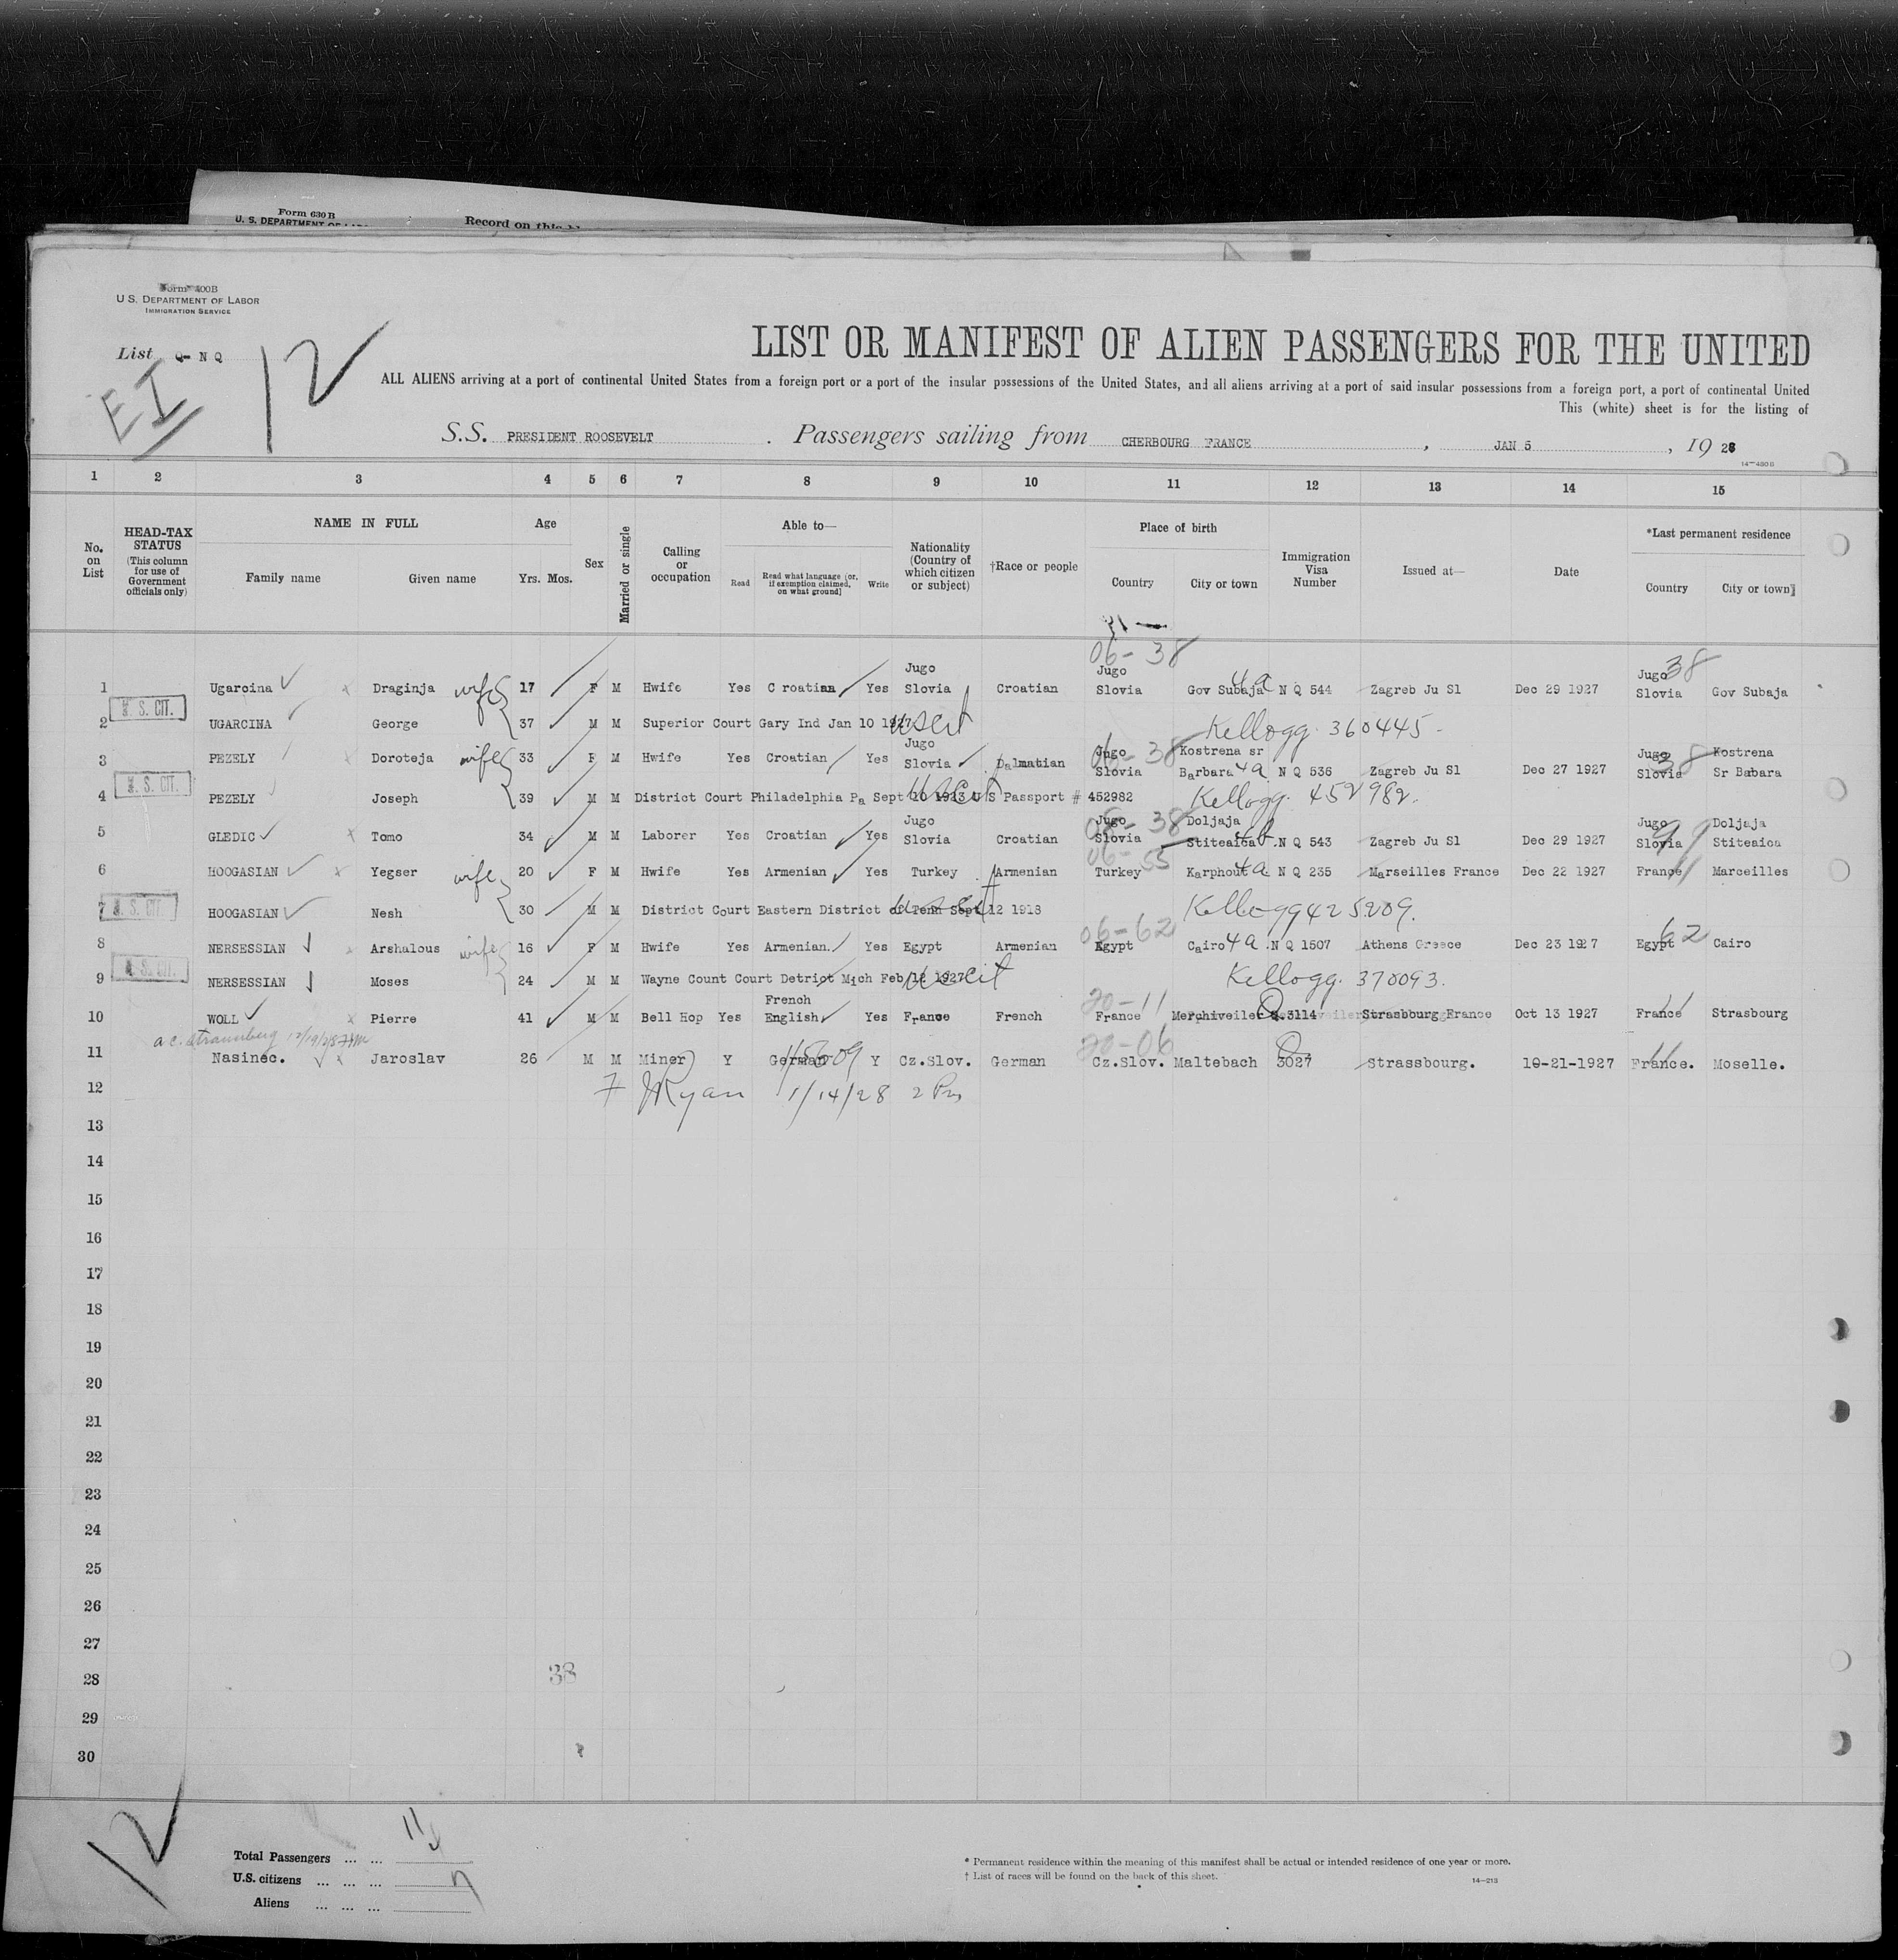 Form 630 B
U. S. DEPARTMENT OF LAB
Record on this bl
Form 400B
U. S. DEPARTMENT OF LABOR
IMMIGRATION SERVICE
List Q- N Q
EI
12
LIST OR MANIFEST OF ALIEN PASSENGERS FOR THE UNITED
ALL ALIENS arriving at a port of continental United States from a foreign port or a port of the insular possessions of the United States, and all aliens arriving at a port of said insular possessions from a foreign port, a port of continental United
This (white) sheet is for the listing of
S.S. PRESIDENT ROOSEVELT . Passengers sailing from CHERBOURG FRANCE , JAN 5 , 19 28
14—400 B
1 2 3 4 5 6 7 8 9 10 11 12 13 14 15
No. on List
HEAD-TAX STATUS (This column for use of Government officials only)
NAME IN FULL
Family name
Given name
Age
Yrs. Mos.
Sex
Married or single
Calling or occupation
Able to—
Read
Read what language [or, if exemption claimed, on what ground]
Write
Nationality (Country of which citizen or subject)
†Race or people
Place of birth
Country
City or town
Immigration Visa Number
Issued at—
Date
*Last permanent residence
Country
City or town
06-38 38
1 Ugarcina Draginja wife 17 F M Hwife Yes Croatian Yes Jugo Slovia Croatian Jugo Slovia Gov Subaja 4a N Q 544 Zagreb Ju Sl Dec 29 1927 Jugo Slovia Gov Subaja
U. S. CIT.
2 UGARCINA George 37 M M Superior Court Gary Ind Jan 10 1927 uscit Kellogg. 360445-
3 PEZELY Doroteja wife 33 F M Hwife Yes Croatian Yes Jugo Slovia Dalmatian 06-38 Jugo Slovia Kostrena sr Barbara 4a N Q 536 Zagreb Ju Sl Dec 27 1927 Jugo Slovia 38 Kostrena Sr Babara
U. S. CIT.
4 PEZELY Joseph 39 M M District Court Philadelphia Pa Sept 10 1923 U S Passport # 452982 uscit Kellogg. 452982.
5 GLEDIC Tomo 34 M M Laborer Yes Croatian Yes Jugo Slovia Croatian 06-38 Jugo Slovia Doljaja Stiteaica N Q 543 Zagreb Ju Sl Dec 29 1927 Jugo Slovia 99 Doljaja Stiteaica
6 HOOGASIAN Yegser wife 20 F M Hwife Yes Armenian Yes Turkey Armenian 06-55 Turkey Karphout 4a N Q 235 Marseilles France Dec 22 1927 France 11 Marceilles
7 U. S. CIT. HOOGASIAN Nesh 30 M M District Court Eastern District of Penn Sept 12 1918 uscit Kellogg 425209.
8 NERSESSIAN Arshalous wife 16 F M Hwife Yes Armenian. Yes Egypt Armenian 06-62 Egypt Cairo 4a N Q 1507 Athens Greece Dec 23 1927 Egypt 62 Cairo
U. S. CIT.
9 NERSESSIAN Moses 24 M M Wayne Count Court Detriot Mich Feb 12 1927 uscit Kellogg. 370093.
10 WOLL Pierre 41 M M Bell Hop Yes French English Yes France French 20-11 France Merchiveiler Q.3114 Strasbourg France Oct 13 1927 France 11 Strasbourg
11 Nasinec. Jaroslav 26 M M Miner Y German Y Cz.Slov. German 20-06 Cz.Slov. Maltebach 3027 Strassbourg. 10-21-1927 France. 11 Moselle.
12 Ryan 1/14/28 2 Pm
13
14
15
16
17
18
19
20
21
22
23
24
25
26
27
28 38
29
30
12
Total Passengers ... ... 11
U.S. citizens ... ... ...
Aliens ... ... ...
* Permanent residence within the meaning of this manifest shall be actual or intended residence of one year or more.
† List of races will be found on the back of this sheet.
14—213